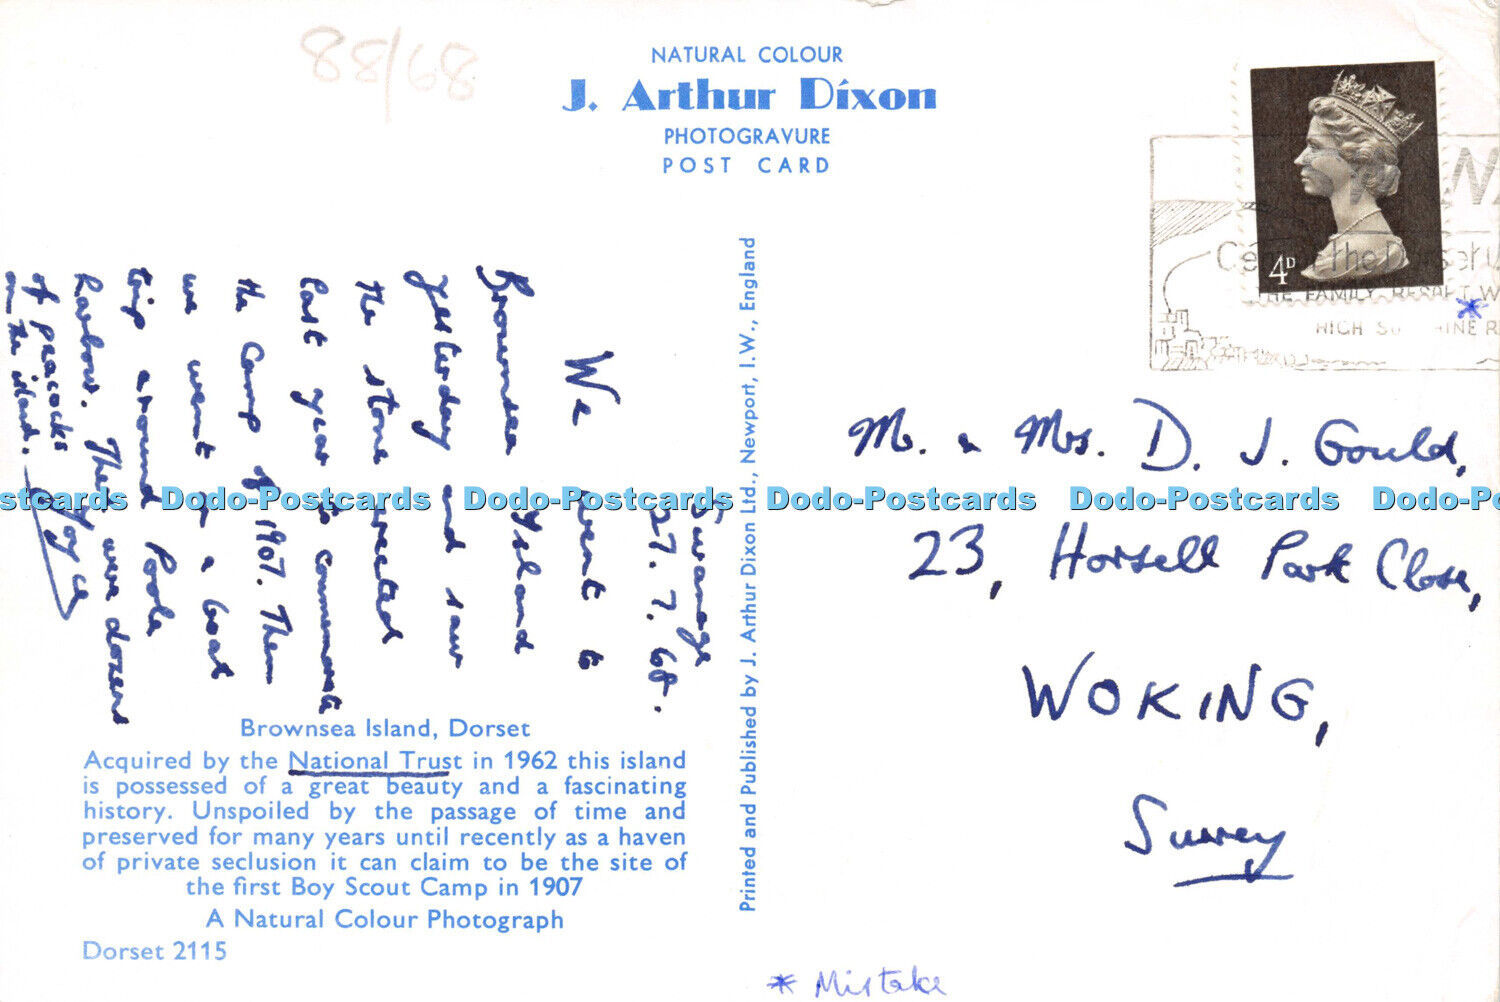 88/68
NATURAL COLOUR
J. Arthur Dixon
PHOTOGRAVURE
POST CARD
4D
THE FAMILY RESORT
HIGH
*
Swanage
27.7.68.
We went to
Brownsea Island
yesterday and saw
the stone erected
last year to commemorate
the Camp of 1907. Then
we went on a boat
trip around Poole
Harbour. There were dozens
of peacocks
on the island. Joyce
Mr. & Mrs. D. J. Gould,
23, Horsell Park Close,
WOKING,
Surrey
Brownsea Island, Dorset
Acquired by the National Trust in 1962 this island
is possessed of a great beauty and a fascinating
history. Unspoiled by the passage of time and
preserved for many years until recently as a haven
of private seclusion it can claim to be the site of
the first Boy Scout Camp in 1907
A Natural Colour Photograph
Dorset 2115
Printed and Published by J. Arthur Dixon Ltd., Newport, I.W., England
* Mistake
Dodo-Postcards Dodo-Postcards Dodo-Postcards Dodo-Postcards